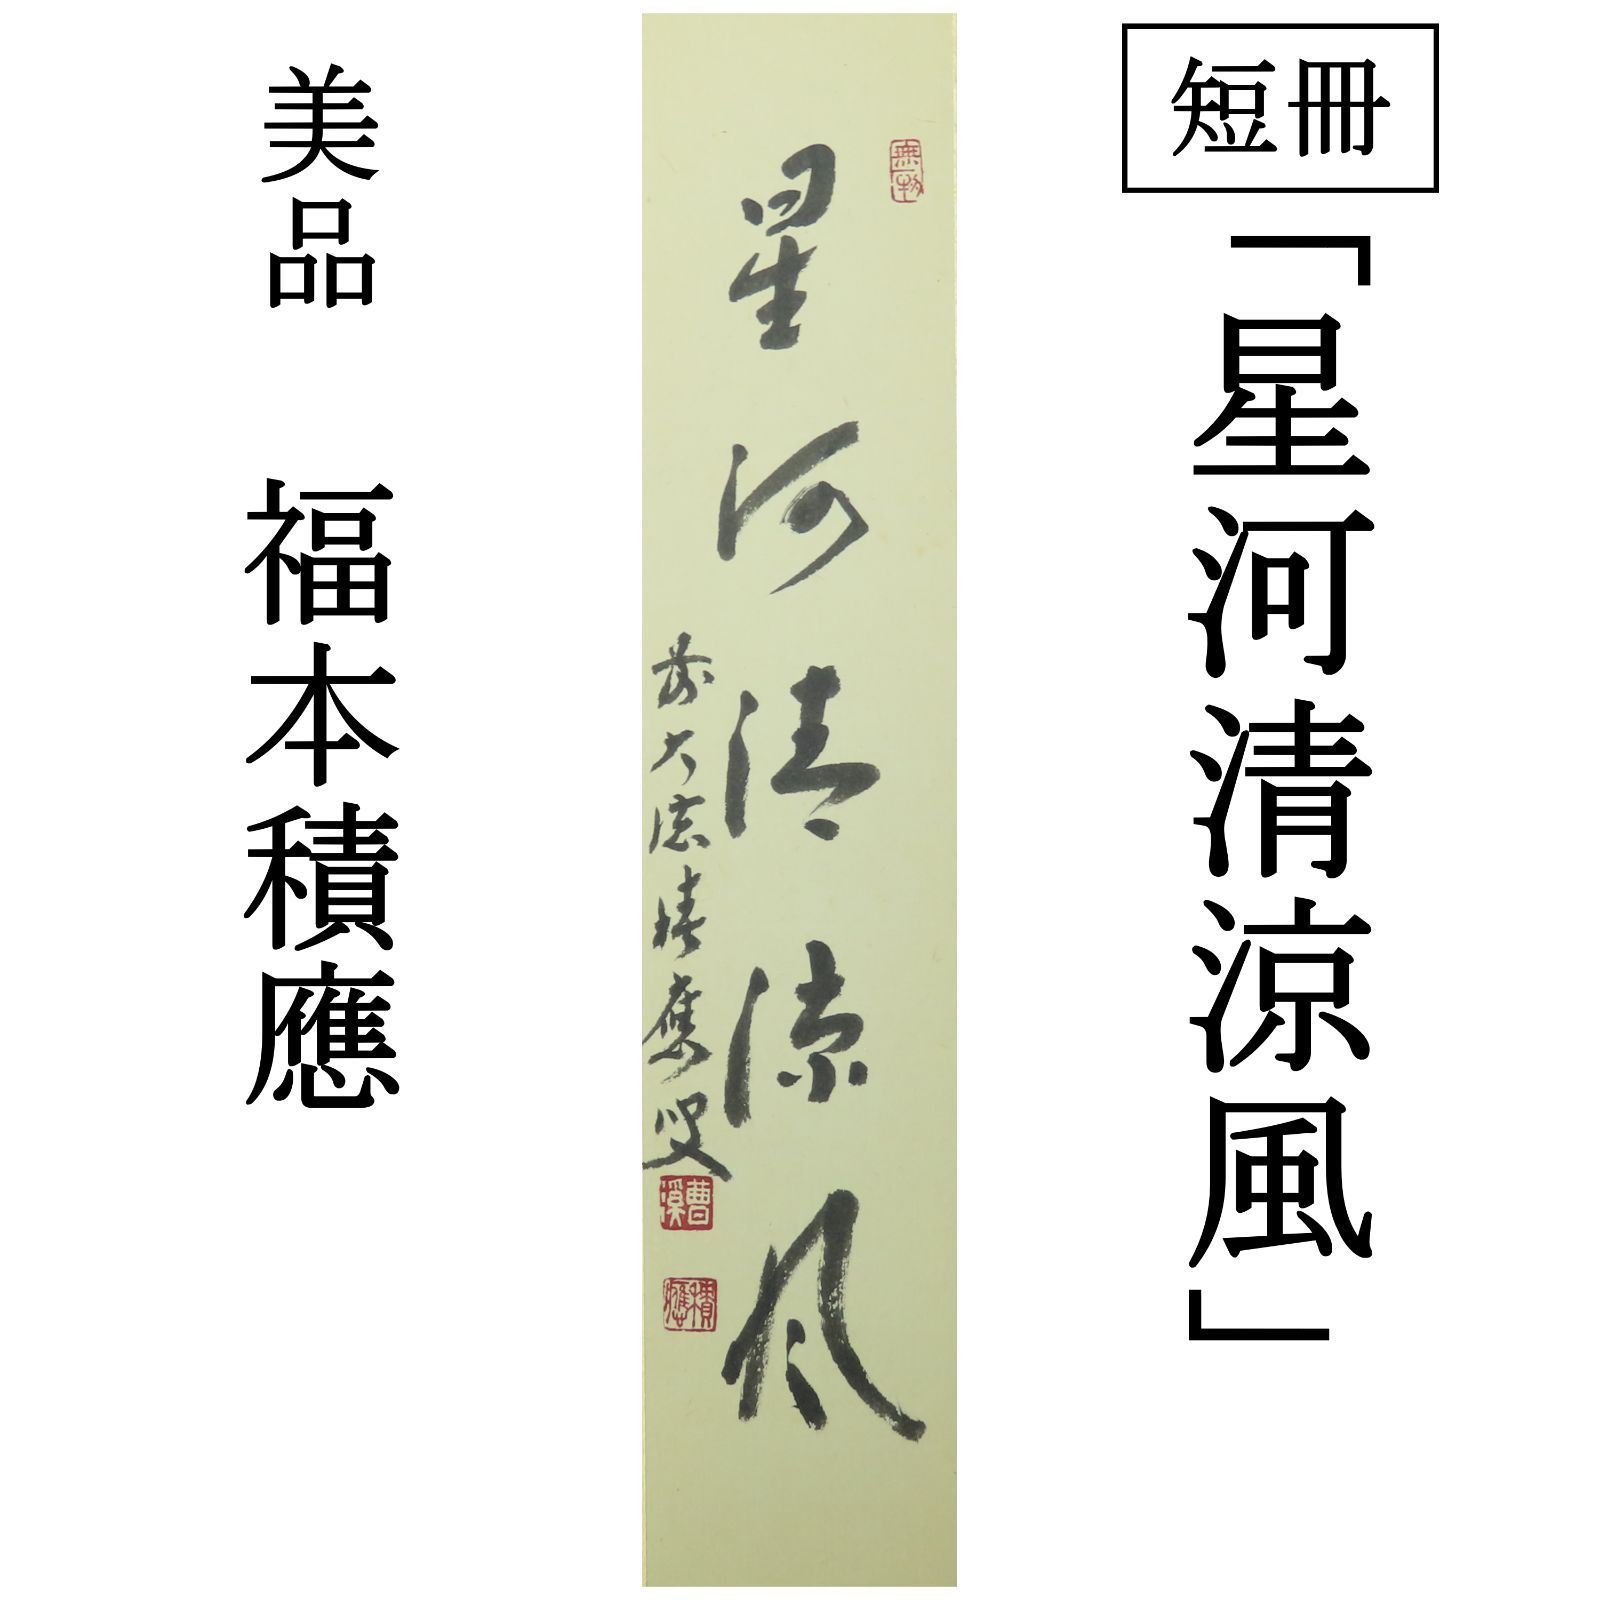 短冊
「星河清涼風」
無物
星河清涼風
前大徳積應叟
曹溪
積應
美品 福本積應